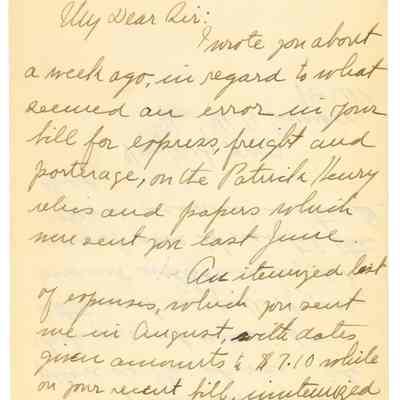 My Dear Sir:
I wrote you about
a week ago, in regard to what
seemed an error in your
bill for express, freight and
porterage, on the Patrick Henry
relics and papers which
were sent you last June.
An itemized list
of expenses, which you sent
me in August, with dates
given amounts to $7.10 while
on your recent bill, unitemized